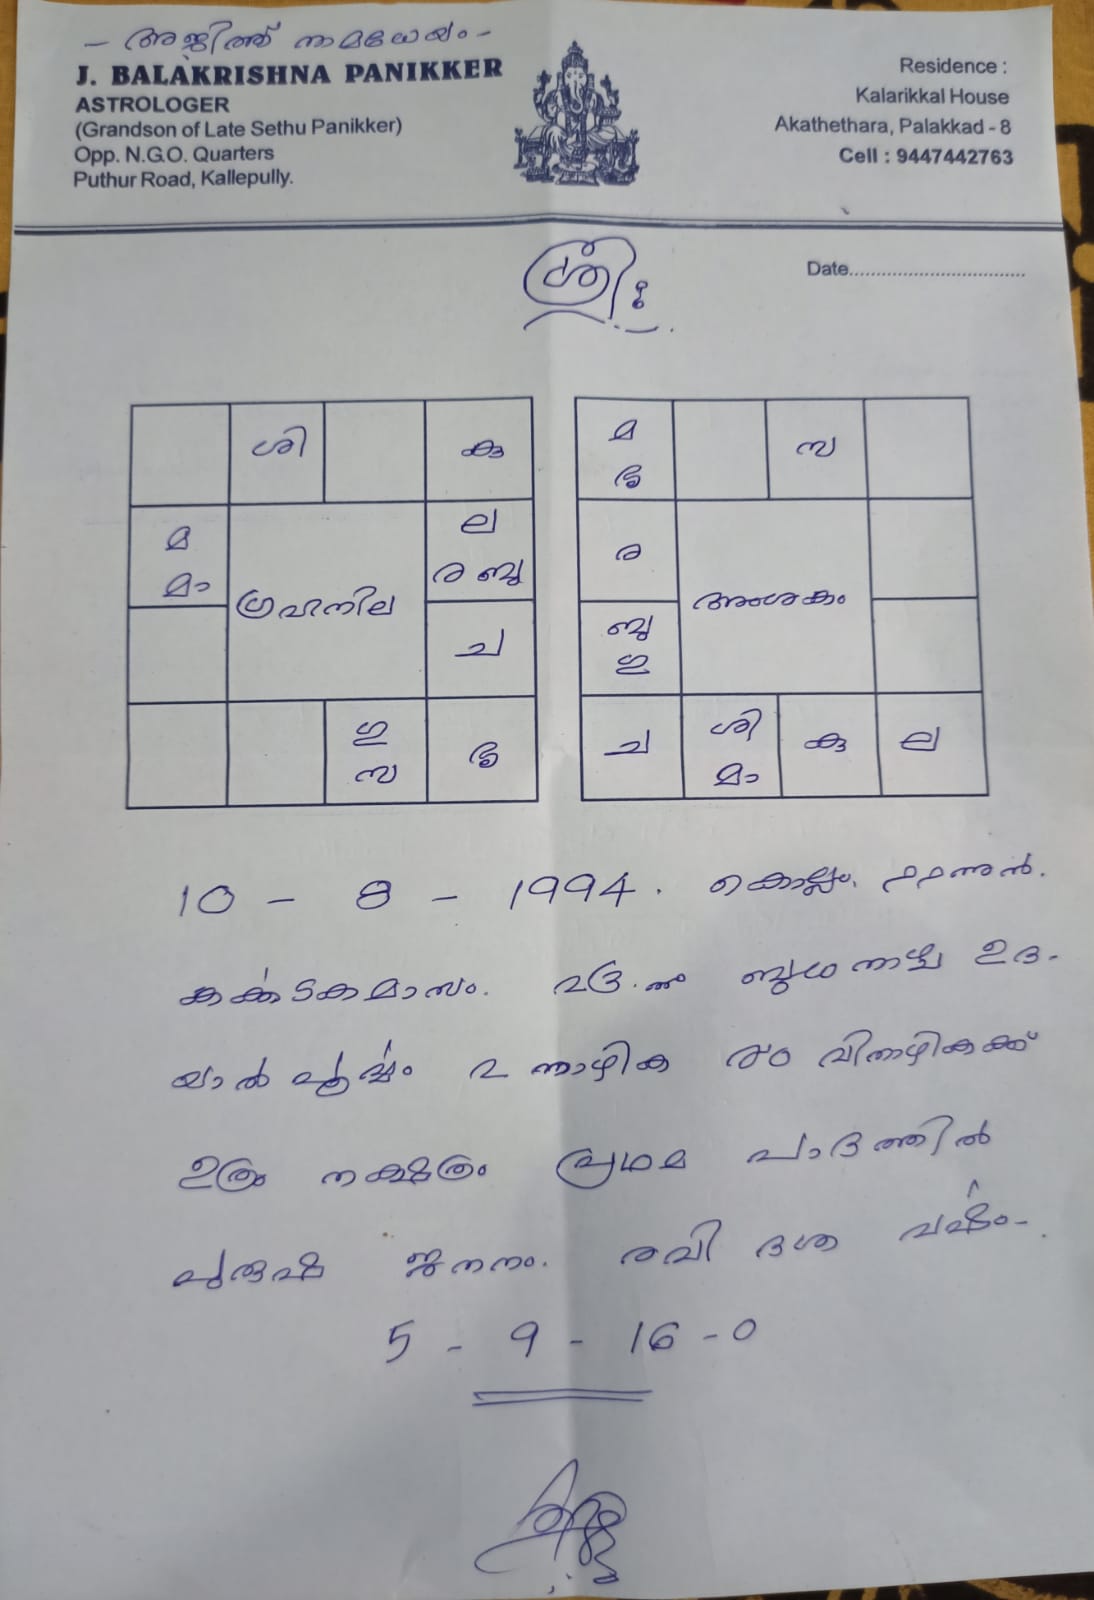 - അജിത്ത് നാമധേയം -
J. BALAKRISHNA PANIKKER
ASTROLOGER
(Grandson of Late Sethu Panikker)
Opp. N.G.O. Quarters
Puthur Road, Kallepully.
Residence :
Kalarikkal House
Akathethara, Palakkad - 8
Cell : 9447442763
ശ്രീ
Date
ശി
കു
മ
മാ
ഗ്രഹനില
ല
ര ബു
ച
ഗു
സ
ശു
മ
ശു
സ
ര
അംശകം
ബു
ഗു
ച
ശി
മാ
കു
ല
10 - 8 - 1994. കൊല്ലം.
കർക്കടകമാസം. ബുധനാഴ്ച ഉദ-
യാൽ പൂർവ്വം ൨ നാഴിക ൪൦ വിനാഴികക്ക്
ഉത്രം നക്ഷത്രം പ്രഥമ പാദത്തിൽ
പുരുഷ ജനനം. രവി ദശ വർഷം -
5 - 9 - 16 - 0